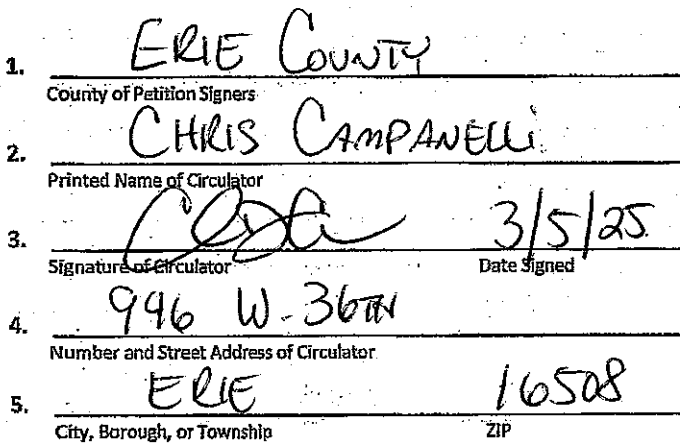 1. ERIE COUNTY
County of Petition Signers
2. CHRIS CAMPANELLI
Printed Name of Circulator
3. 3/5/25
Signature of Circulator Date Signed
4. 996 W. 36TH
Number and Street Address of Circulator
5. ERIE 16508
City, Borough, or Township ZIP